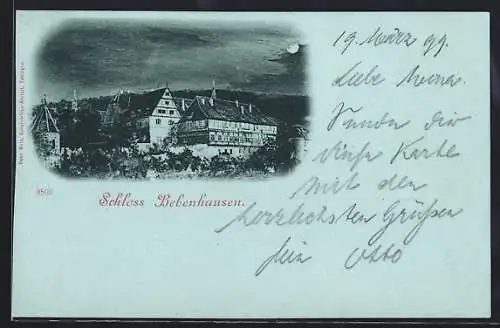 19. März 99.
Liebe
Sende dir
diese Karte
mit den
herzlichsten Grüßen
dein Otto
Schloss Bebenhausen.